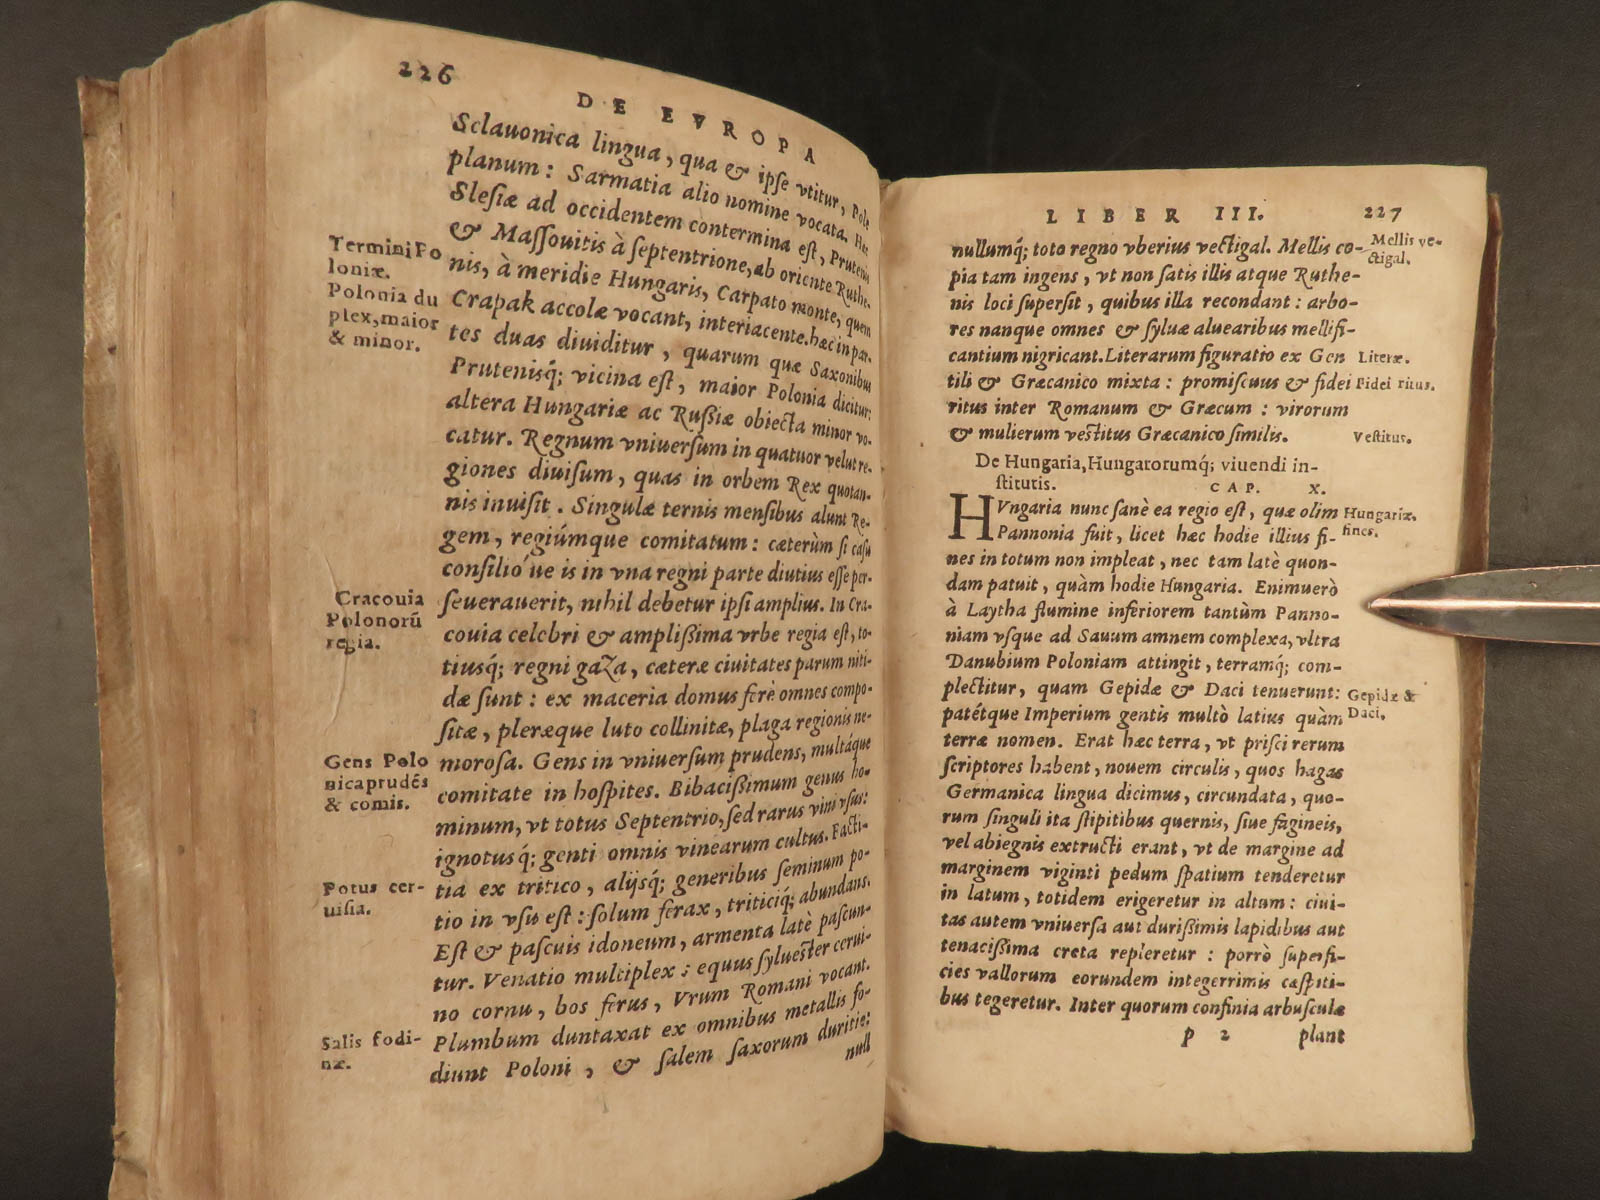 226
DE EVROPA
Sclauonica lingua, qua & ipse vtitur, Pole
planum: Sarmatia alio nomine vocata. Hæc
Slesiæ ad occidentem contermina est, Prutenis
& Massouitis à septentrione, ab oriente Ruthe-
nis, à meridie Hungaris, Carpato monte, quem
Crapak accolæ vocant, interiacente. hæc in par-
tes duas diuiditur, quarum quæ Saxonibus
Prutenisq́; vicina est, maior Polonia dicitur:
altera Hungariæ ac Russiæ obiecta minor vo-
catur. Regnum vniuersum in quatuor velut re-
giones diuisum, quas in orbem Rex quotan-
nis inuisit. Singulæ ternis mensibus alunt Re-
gem, regiúmque comitatum: cæterùm si casu
consilió ue is in vna regni parte diutius esse per-
seuerauerit, nihil debetur ipsi amplius. In Cra-
couia celebri & amplissima vrbe regia est, to-
tiusq́; regni gaza, cæteræ ciuitates parum niti-
dæ sunt: ex maceria domus ferè omnes compo-
sitæ, pleræque luto collinitæ, plaga regionis ne-
morosa. Gens in vniuersum prudens, multáque
comitate in hospites. Bibacissimum genus ho-
minum, vt totus Septentrio, sed rarus vini vsus:
ignotusq́; genti omnis vinearum cultus. Facti-
tia ex tritico, alijsq́; generibus seminum po-
tio in vsu est: solum ferax, triticiq́; abundans.
Est & pascuis idoneum, armenta latè pascun-
tur. Venatio multiplex: equus syluester cerui-
no cornu, bos ferus, Vrum Romani vocant.
Plumbum duntaxat ex omnibus metallis fo-
diunt Poloni, & salem saxorum duritie:
null
Termini Po
loniæ.
Polonia du
plex, maior
& minor.
Cracouia
Polonorū
regia.
Gens Polo
nica prudēs
& comis.
Potus cer-
uisia.
Salis fodi-
næ.
LIBER III. 227
nullumq́; toto regno vberius vectigal. Mellis co-
pia tam ingens, vt non satis illis atque Ruthe-
nis loci supersit, quibus illa recondant: arbo-
res nanque omnes & syluæ aluearibus mellifi-
cantium nigricant. Literarum figuratio ex Gen
tili & Græcanico mixta: promiscuus & fidei
ritus inter Romanum & Græcum: virorum
& mulierum vestitus Græcanico similis.
De Hungaria, Hungarorumq́; viuendi in-
stitutis. CAP. X.
HVngaria nunc sanè ea regio est, quæ olim
Pannonia fuit, licet hæc hodie illius fi-
nes in totum non impleat, nec tam latè quon-
dam patuit, quàm hodie Hungaria. Enimuerò
à Laytha flumine inferiorem tantùm Panno-
niam vsque ad Sauum amnem complexa, vltra
Danubium Poloniam attingit, terramq́; com-
plectitur, quam Gepidæ & Daci tenuerunt:
patétque Imperium gentis multò latius quàm
terræ nomen. Erat hæc terra, vt prisci rerum
scriptores habent, nouem circulis, quos hagas
Germanica lingua dicimus, circundata, quo-
rum singuli ita stipitibus quernis, siue fagineis,
vel abiegnis extructi erant, vt de margine ad
marginem viginti pedum spatium tenderetur
in latum, totidem erigeretur in altum: ciui-
tas autem vniuersa aut durissimis lapidibus aut
tenacissima creta repleretur: porrò superfi-
cies vallorum eorundem integerrimis cæspiti-
bus tegeretur. Inter quorum confinia arbusculæ
p 2 plant
Mellis ve-
ctigal.
Literæ.
Fidei ritus.
Vestitus.
Hungariæ.
fines.
Gepidæ &
Daci.